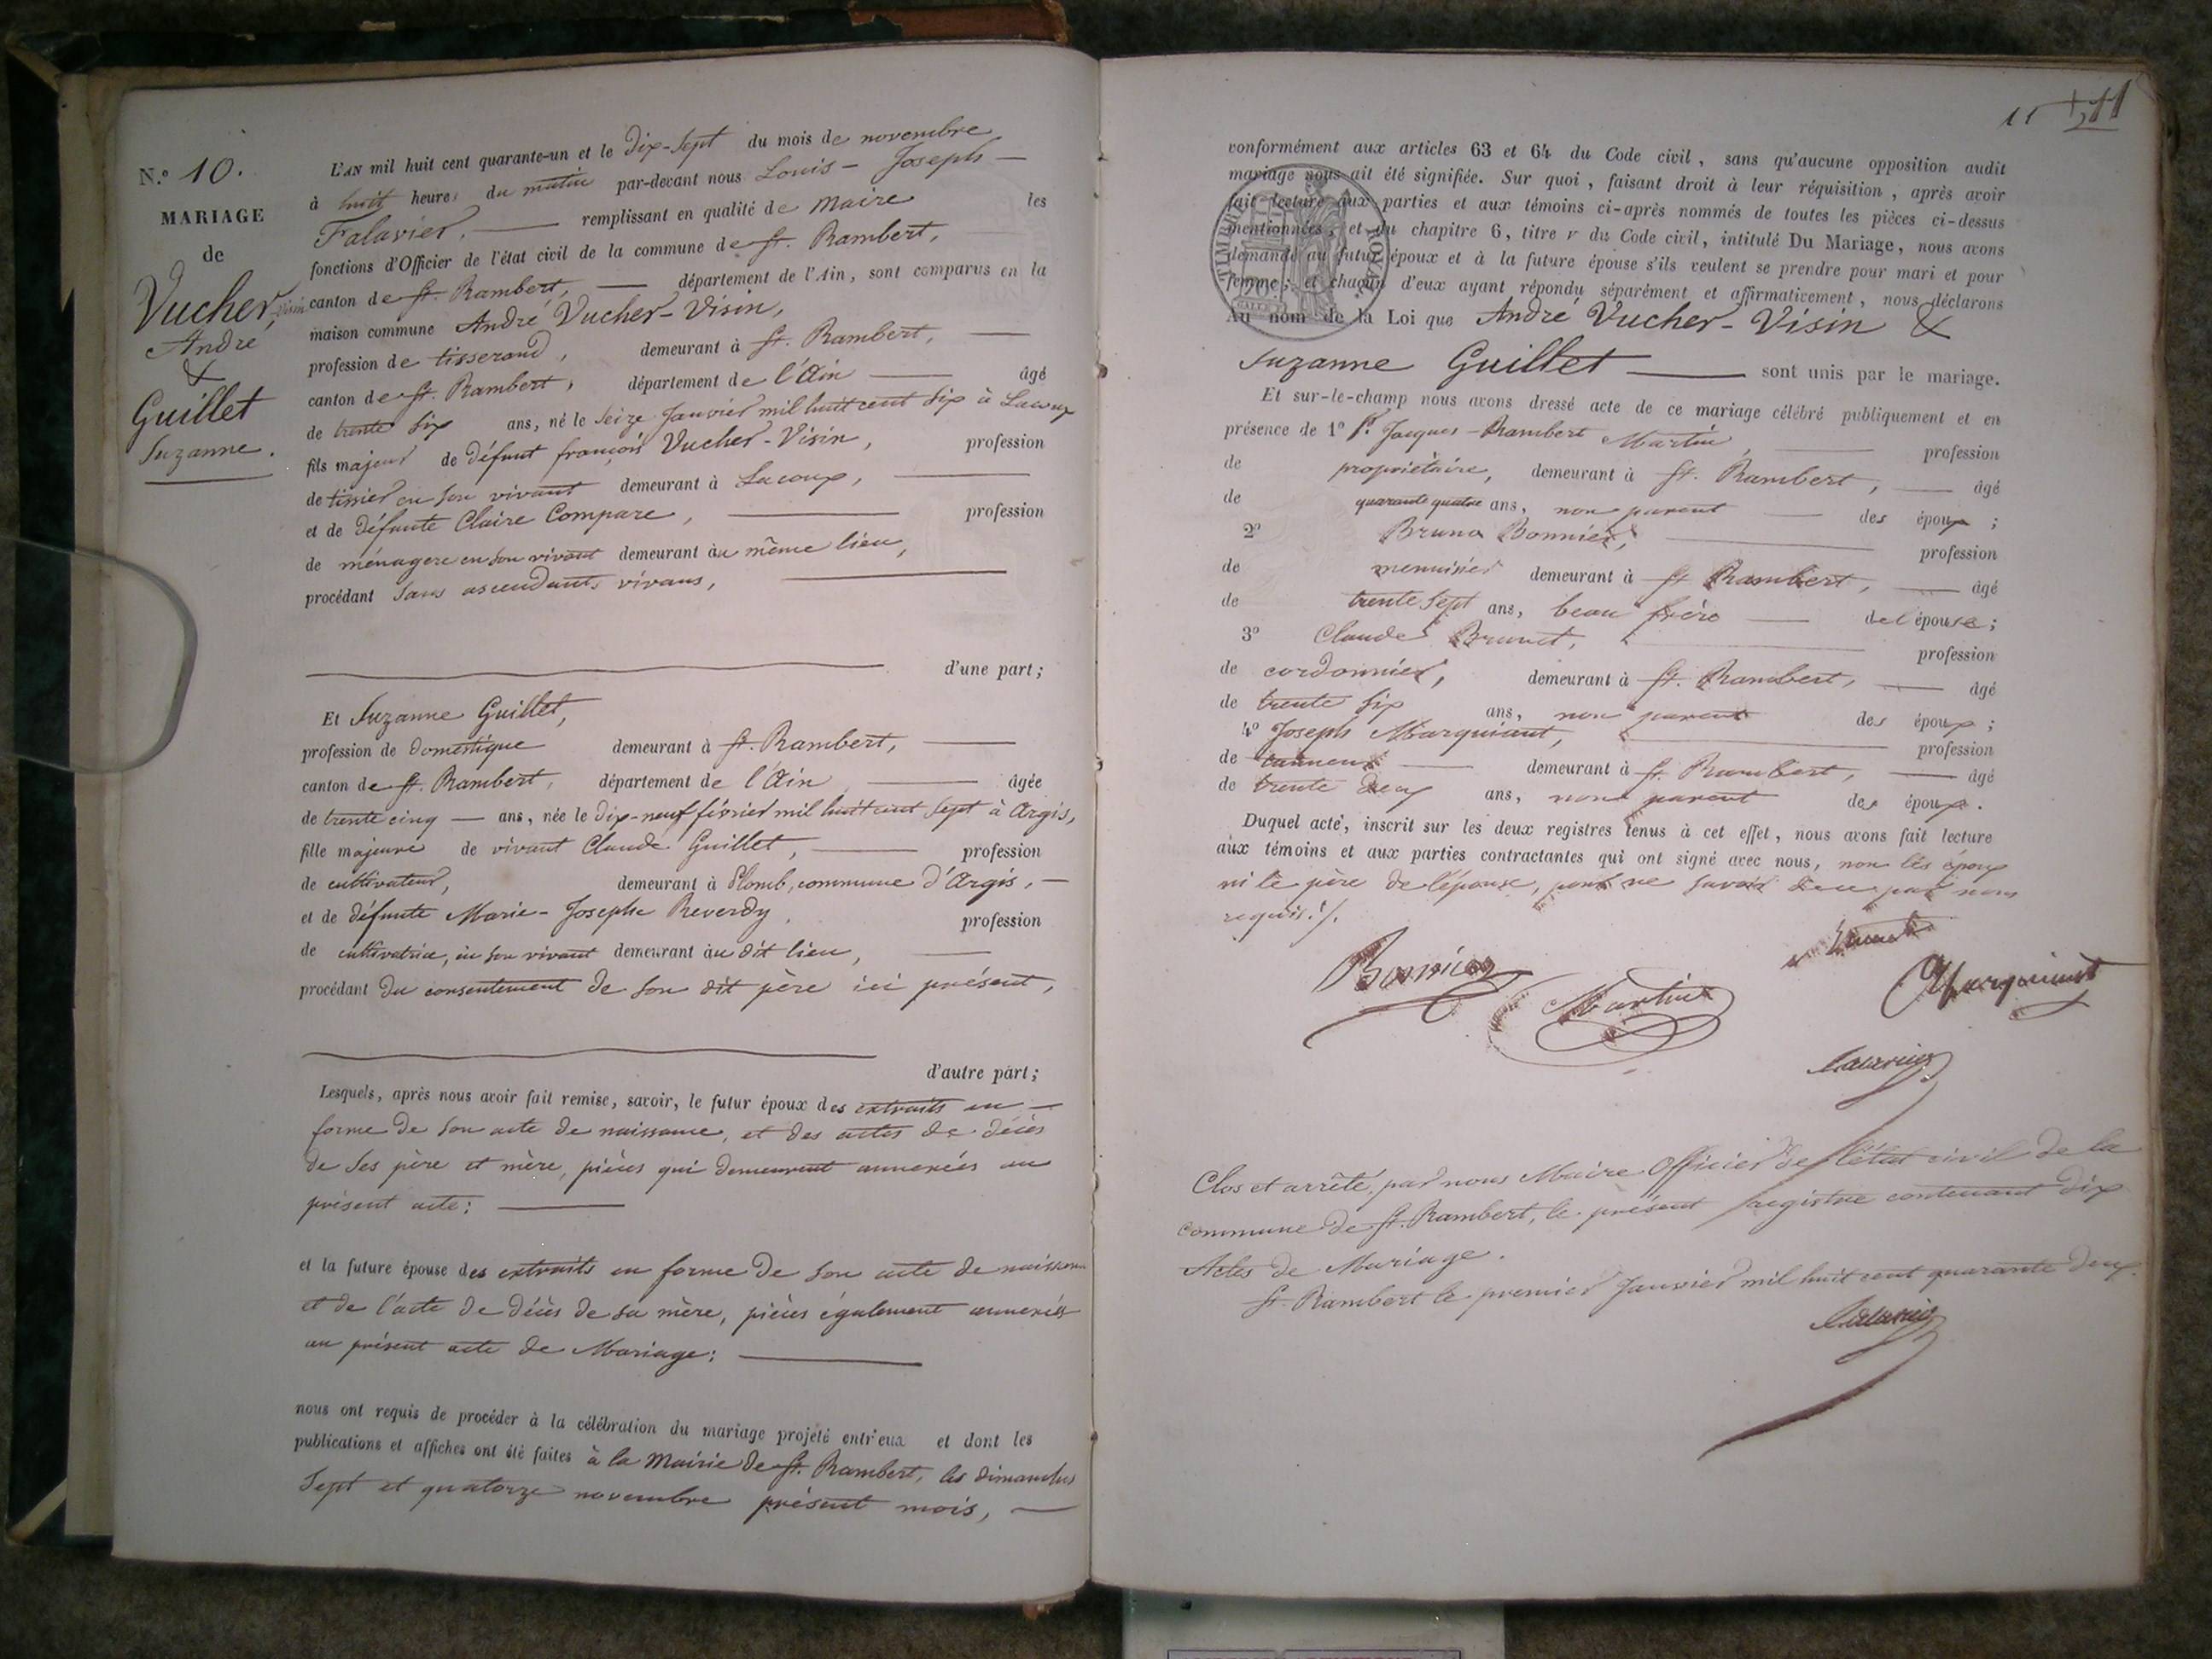 N.º 10.
MARIAGE
de
Vucher, Visin
André
&
Guillet
Suzanne.
L'AN mil huit cent quarante-un et le dix-sept du mois de novembre
à huit heures du matin par-devant nous Louis-Joseph
Falavier, remplissant en qualité de Maire les
fonctions d'Officier de l'état civil de la commune de St. Rambert,
canton de St. Rambert, département de l'Ain, sont comparus en la
maison commune André Vucher-Visin,
profession de tisserand, demeurant à St. Rambert,
canton de St. Rambert, département de l'Ain âgé
de trente six ans, né le seize Janvier mil huit cent six à Lacoux
fils majeur de défunt françois Vucher-Visin, profession
de tissier en son vivant demeurant à Lacoux,
et de défunte Claire Compare, profession
de ménagere en son vivant demeurant au même lieu,
procédant sans ascendants vivans,
d'une part;
Et Suzanne Guillet,
profession de domestique demeurant à St. Rambert,
canton de St. Rambert, département de l'Ain âgée
de trente cinq ans, née le dix-neuf février mil huit cent sept à Argis,
fille majeure de vivant Claude Guillet, profession
de cultivateur, demeurant à Plomb, commune d'Argis,
et de défunte Marie-Josephe Reverdy, profession
de cultivatrice, en son vivant demeurant au dit lieu,
procédant du consentement de son dit père ici présent,
d'autre part;
Lesquels, après nous avoir fait remise, savoir, le futur époux des extraits en
forme de son acte de naissance, et des actes de décès
de ses père et mère, pièces qui demeurent annexées au
présent acte:
et la future épouse des extraits en forme de son acte de naissance
et de l'acte de décès de sa mère, pièces également annexées
au présent acte de Mariage:
nous ont requis de procéder à la célébration du mariage projeté entr'eux et dont les
publications et affiches ont été faites à la Mairie de St. Rambert, les dimanches
sept et quatorze novembre présent mois,
11 11
conformément aux articles 63 et 64 du Code civil, sans qu'aucune opposition audit
mariage nous ait été signifiée. Sur quoi, faisant droit à leur réquisition, après avoir
fait lecture aux parties et aux témoins ci-après nommés de toutes les pièces ci-dessus
mentionnées, et du chapitre 6, titre v du Code civil, intitulé Du Mariage, nous avons
demandé au futur époux et à la future épouse s'ils veulent se prendre pour mari et pour
femme; et chacun d'eux ayant répondu séparément et affirmativement, nous déclarons
Au nom de la Loi que André Vucher-Visin &
Suzanne Guillet sont unis par le mariage.
TIMBRE ROYAL
Et sur-le-champ nous avons dressé acte de ce mariage célébré publiquement et en
présence de 1º Jacques-Rambert Martin, profession
de propriétaire, demeurant à St. Rambert, âgé
de quarante quatre ans, non parent des époux;
2º Bruno Bonnier, profession
de menuisier demeurant à St Rambert, âgé
de trente sept ans, beau frère de l'épouse;
3º Claude Brunet, profession
de cordonnier, demeurant à St. Rambert, âgé
de trente six ans, non parent des époux;
4º Joseph Marquiant, profession
de tanneur demeurant à St. Rambert, âgé
de trente deux ans, non parent des époux.
Duquel acte, inscrit sur les deux registres tenus à cet effet, nous avons fait lecture
aux témoins et aux parties contractantes qui ont signé avec nous, non les époux
ni le père de l'épouse, pour ne savoir de ce par nous
requis./.
Brunet
Bonnier
Martin
Marquiant
Falavier
Clos et arrêté, par nous Maire Officier de l'état civil de la
commune de St. Rambert, le présent registre contenant dix
Actes de Mariage.
St. Rambert le premier Janvier mil huit cent quarante deux.
Falavier